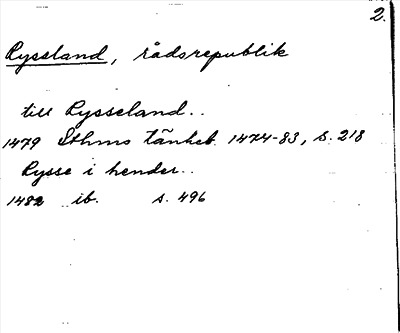 2.
Ryssland, rådsrepublik
till Rysseland..
1479 Sthms tänkeb. 1474-83, s. 218
Rysse i hender..
1482 ib. s. 496